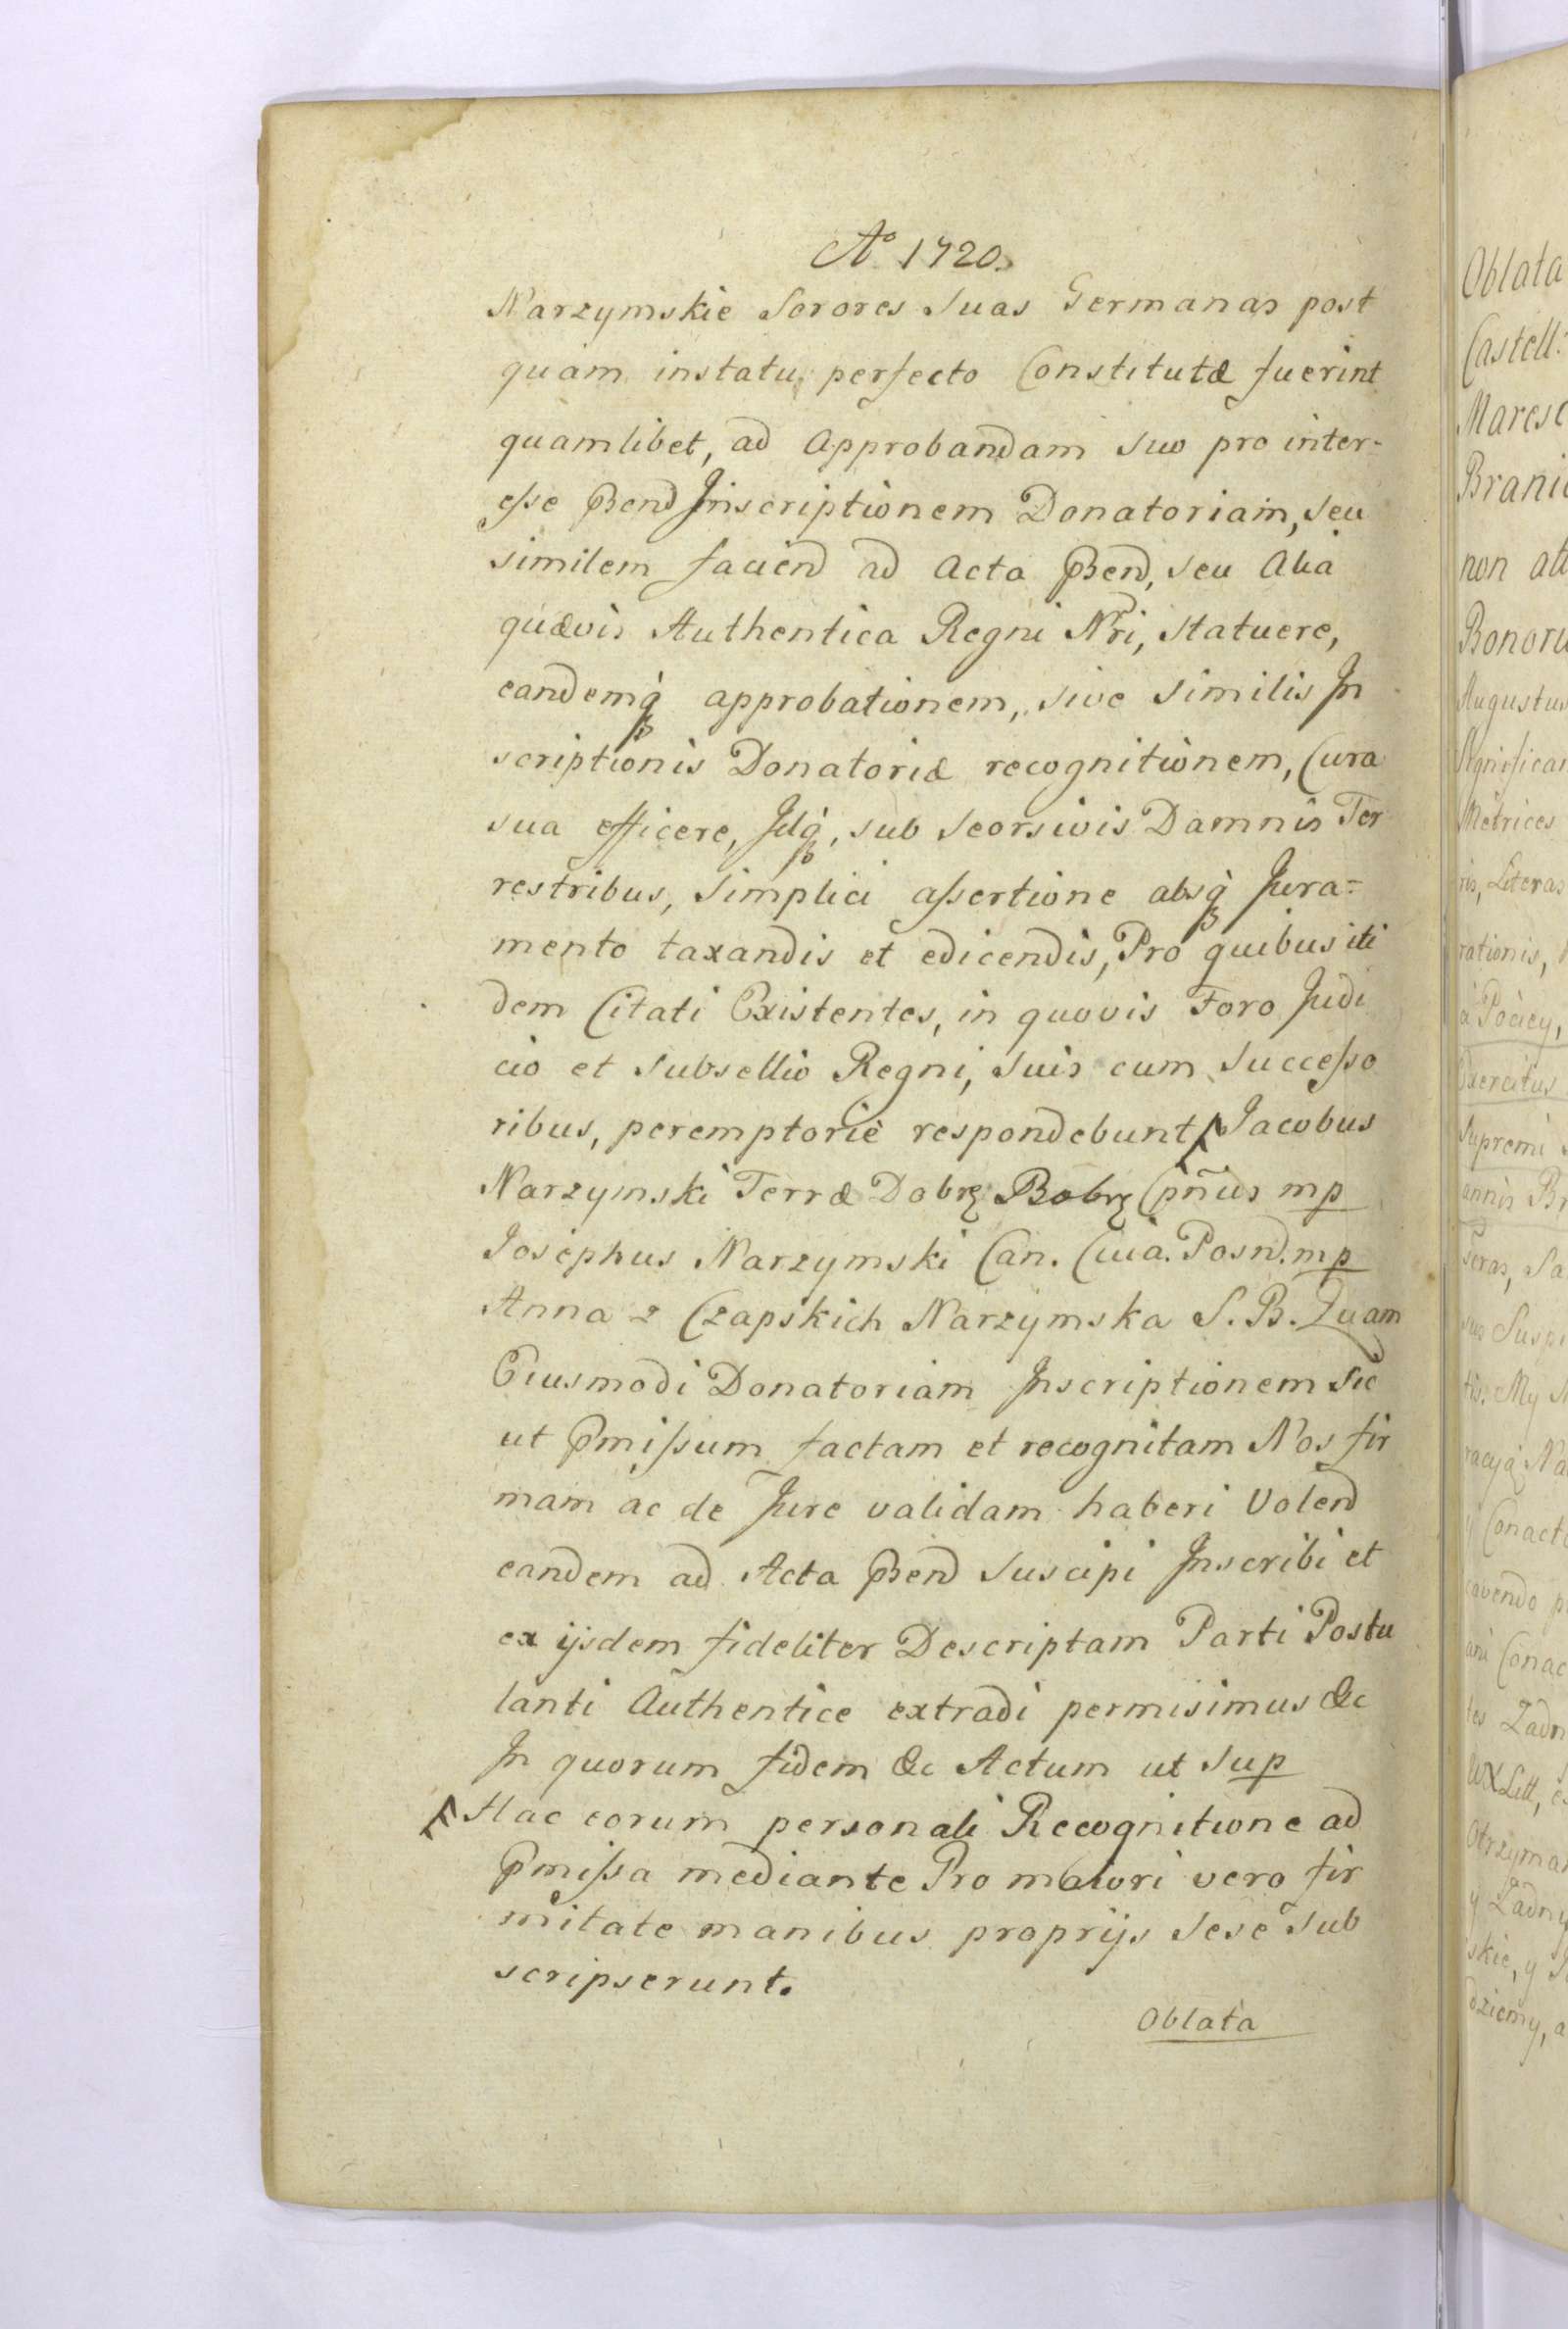 Aº 1720.
Narzymskie Sorores Suas Germanas post
quam instatu perfecto Constitutæ fuerint
quamlibet, ad Approbandam suo pro inter-
esse Pend Inscriptionem Donatoriam, seu
similem faciend ad Acta Pend, seu Alia
quævis Authentica Regni Nri, statuere,
eandemq approbationem, sive similis In
scriptionis Donatoriæ recognitionem, Cura
sua efficere, Idq, sub seorsivis Damnis Ter
restribus, simplici assertione absq Jura=
mento taxandis et edicendis, Pro quibus iti
dem Citati Existentes, in quovis Foro Judi
cio et Subsellio Regni, suis cum Successo
ribus, peremptoriè respondebunt Jacobus
Narzymski Terræ Dobrz Bobrz Cpñus mp
Josephus Narzymski Can. Cuia. Posn. mp
Anna z Czapskich Narzymska S. B. Quam
Eiusmodi Donatoriam Inscriptionem Sic
ut Pmissum factam et recognitam Nos fir
mam ac de Jure validam haberi Volend
eandem ad Acta Pend suscipi Inscribi et
ex ijsdem fideliter Descriptam Parti Postu
lanti Authentice extradi permisimus &c
In quorum fidem &c Actum ut sup
Hac eorum personali Recognitione ad
Pmissa mediante Pro maiori vero fir
mitate manibus proprijs sese sub
scripserunt.
Oblata
Oblata
Castell:
Maresc
Brani
non att
Bonoru
Augustus
Significa
Metrices
ris, Literas
rationis,
a Pociey,
Exercitus
Supremi
annis Br
Sup
tis. My
racyą Na
y Conact
cavendo p
ani Conac
tes Zadn
WXLitt,
Otrzyma
y Zadny
skie, y
dziemy, a